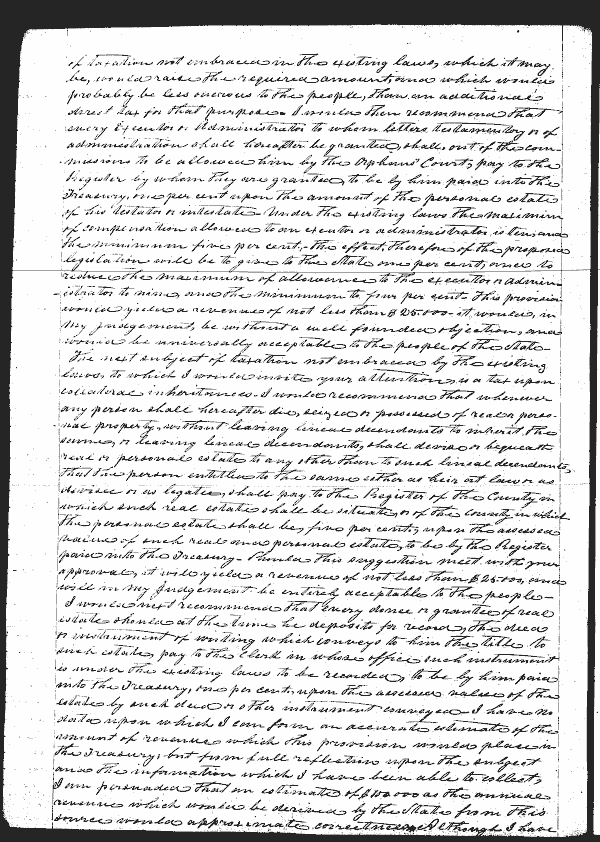 of taxation not embraced in the existing laws, which it may
be, would raise the required amount and which would
probably be less onerous to the people, than an additional
direct tax for that purpose. I would then recommend that
every Executor or Administrator to whom letters testamentary or of
administration shall hereafter be granted, shall, out of the com-
missions to be allowed him by the Orphans' Court, pay to the
Register by whom they are granted, to be by him paid into the
Treasury, one per cent upon the amount of the personal estate
of his testator or intestate. Under the existing laws the maximum
of compensation allowed to an executor or administrator is ten, and
the minimum five per cent,- the effect therefore of the proposed
legislation will be to give to the State one per cent, and to
reduce the maximum of allowance to the executor or admin-
istrator to nine, and the minimum to four per cent. This provision
would yield a revenue of not less than $25.000 - it would, in
my judgement, be without a well founded objection, and
would be universally acceptable to the people of the State
The next subject of taxation not embraced by the existing
laws, to which I would invite your attention, is a tax upon
collateral inheritances. I would recommend that whenever
any person shall hereafter die, seized or possessed of real or perso-
nal property, without leaving lineal decendants to inherit the
same, or leaving lineal decendants, shall devise or bequeath
real or personal estate to any other than to such lineal decendants,
that the person entitled to the same either as heir at law or as
devisee or as legatee, shall pay to the Register of the County in
which such real estate shall be situate, or of the county in which
the personal estate shall be, five per cent, upon the assessed
value of such real and personal estate, to be by the Register
paid into the Treasury - Should this suggestion meet with your
approval, it will yield a revenue of not less than $25.000, and
will in my judgement be entirely acceptable to the people -
I would next recommend that every donee or grantee of real
estate should at the time he deposits for record, the deed
or instrument of writing which conveys to him the title to
such estate, pay to the Clerk in whose office such instrument
is under the existing laws to be recorded, to be by him paid
into the Treasury, one per cent, upon the assessed value of the
estate by such deed or other instrument conveyed. I have no
data upon which I can form an accurate estimate of the
amount of revenue which this provision would place in
the Treasury, but from full reflection upon the subject
and the information which I have been able to collect,
I am persuaded that an estimate of as the annual
revenue which would be derived by the State from this
source would approximate correctness. Although I have